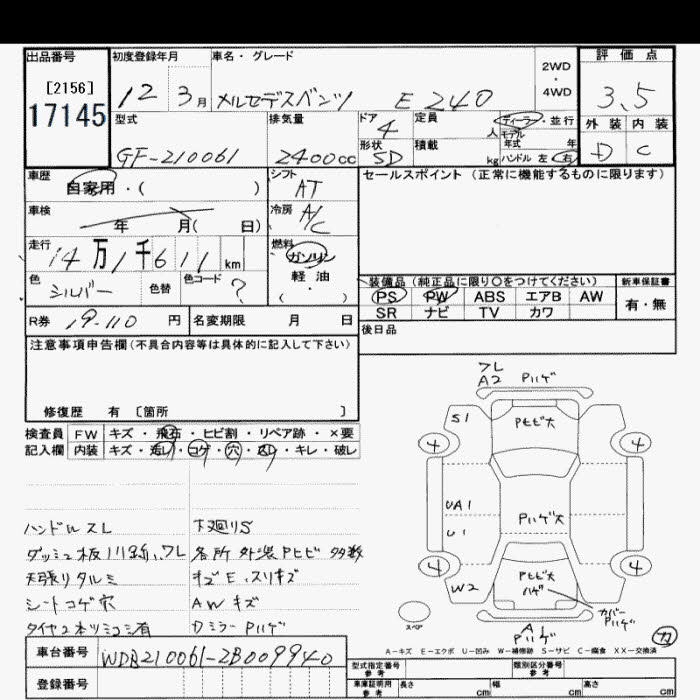 出品番号 初度登録年月 車名・グレード 評価点
[2156]
17145
12 3月 メルセデスベンツ E 240
2WD・4WD
3.5
型式 GF-210061
排気量 2400cc
ドア 4
形状 SD
定員 人
積載 kg
ディーラー・並行
モデル年式 年
ハンドル 左 右
外装 内装
D C
車歴 自家用・( )
シフト AT
セールスポイント (正常に機能するものに限ります)
車検 年 月( 日)
冷房 A/C
走行 14万1千611km
燃料 ガソリン
軽・油
・( )
色 シルバー 色替 色コード ?
装備品 (純正品に限り○をつけてください) 新車保証書
PS PW ABS エアB AW 有・無
SR ナビ TV カワ
R券 19-110 円 名変期限 月 日
後日品
注意事項申告欄(不具合内容等は具体的に記入して下さい)
修復歴 有 〔箇所 〕
検査員 FW キズ・飛石・ヒビ割・リペア跡・×要
記入欄 内装 キズ・汚レ・コゲ・穴・スレ・キレ・破レ
フレ
A2 Pハゲ
S1 Pヒビ大
4 4
UA1 Pハゲ大
U1
4 4
W2 Pヒビ大
ハゲ
カバー
Pハゲ
スペア
A
Pハゲ
ハンドルスレ 下廻りS
ダッシュ板 フレ 各所外装Pヒビ多数
天張りタルミ キズE、スリキズ
シートコゲ穴 AWキズ
タイヤ2本ツミコミ有 Dミラー Pハゲ
A-キズ E-エクボ U-凹み W-補修跡 S-サビ C-腐食 XX-交換済
車台番号 WDB210061-2B009940
登録番号
型式指定番号 参考 類別区分番号 参考
車庫証明用 参考 長さ cm 幅 cm 高さ cm